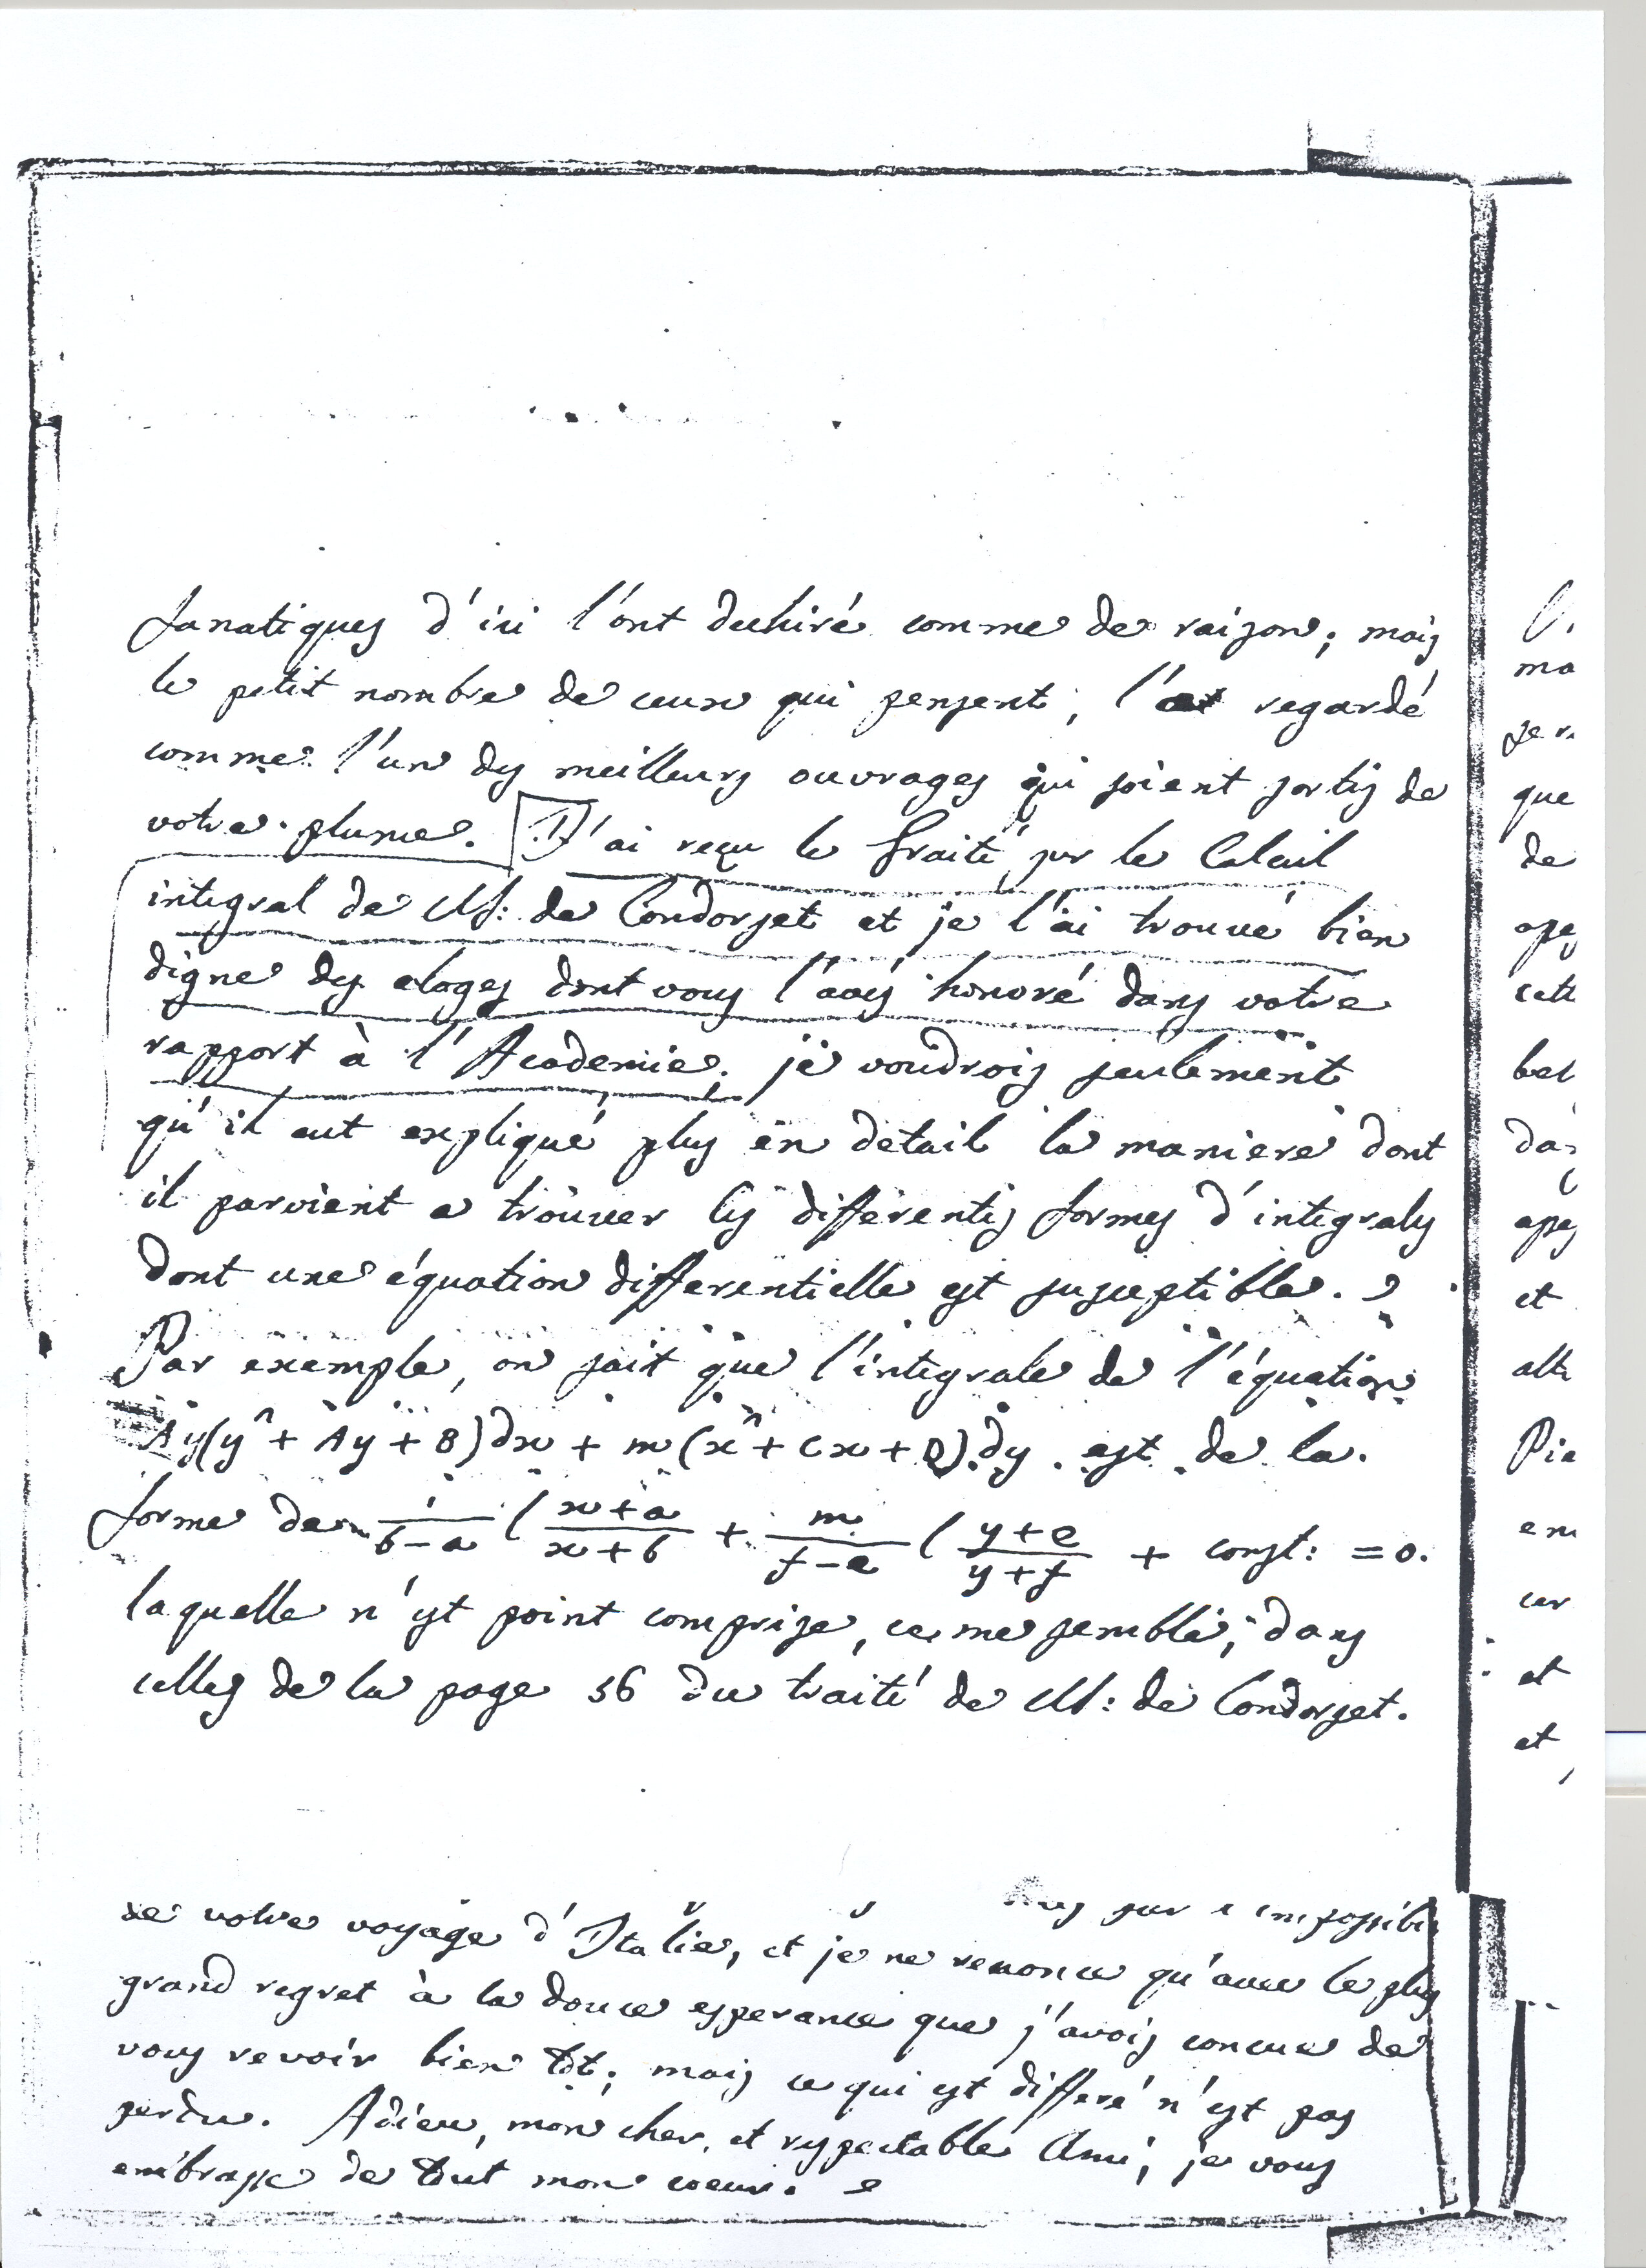 fanatiques d'ici l'ont dechiré comme de raison; mais
le petit nombre de ceux qui pensent, l'a regardé
comme l'un des meilleurs ouvrages qui soient sortis de
votre plume. J'ai reçu le Traité sur le Calcul
integral de M: de Condorset et je l'ai trouvé bien
digne des eloges dont vous l'avés honoré dans votre
rapport à l'Academie. je voudrois seulement
qu'il eut expliqué plus en detail la maniere dont
il parvient a trouver les differentes formes d'integrales
dont une équation differentielle est susceptible.
Par exemple, on sait que l'integrale de l'équation
(y² + Ay + B) dx + m (x² + Cx + D) dy est de la
forme de 1/(b-a) l (x+a)/(x+b) + m/(f-e) l (y+e)/(y+f) + const: = 0.
laquelle n'est point comprise, ce me semble, dans
celles de la page 56 du traité de M: de Condorset.
sur
de votre voyage d'Italie, et je ne renonce qu'avec le plus
grand regret à la douce esperance que j'avois concue de
vous revoir bien tôt; mais ce qui est differé n'est pas
perdu. Adieu, mon cher, et respectable Ami; je vous
embrasse de tout mon coeur.
ma
que
de
et
et
et